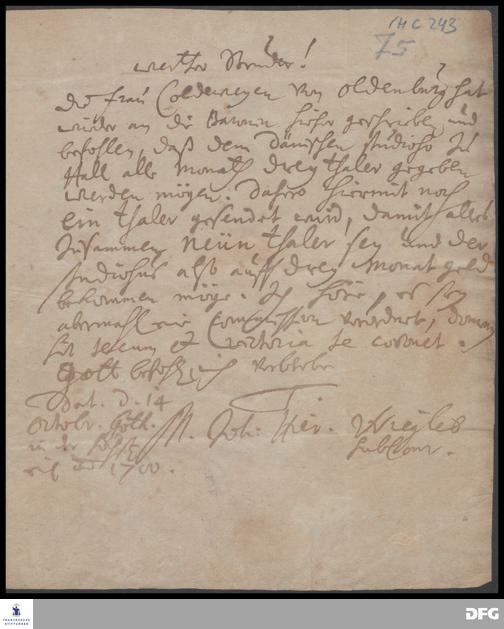 HC 243
75
werther Bruder!
die Frau Coldeweyen von Oldenburg hat
wieder an die hieher geschrieben und
befohlen, daß dem Dänischen Studioso zu
Hall alle Monath drey thaler gegeben
werden mögen. Dahero hiermit noch
ein thaler gesendet wird, damit alles
zusammen neün thaler sey und der
Studiosus also auff drey Monat geld
bekommen möge. Ich höre, es sey
abermahl eine Commission verordnet, Dominus
sit tecum et victoria te coronet.
Gott befohlen ich verbleibe
Dat. d. 14
Octobr. Goth.
in der
eil 1700.
M. Joh: Hier. Wiegleb
Subconr.
FRANCKESCHE
STIFTUNGEN
DFG